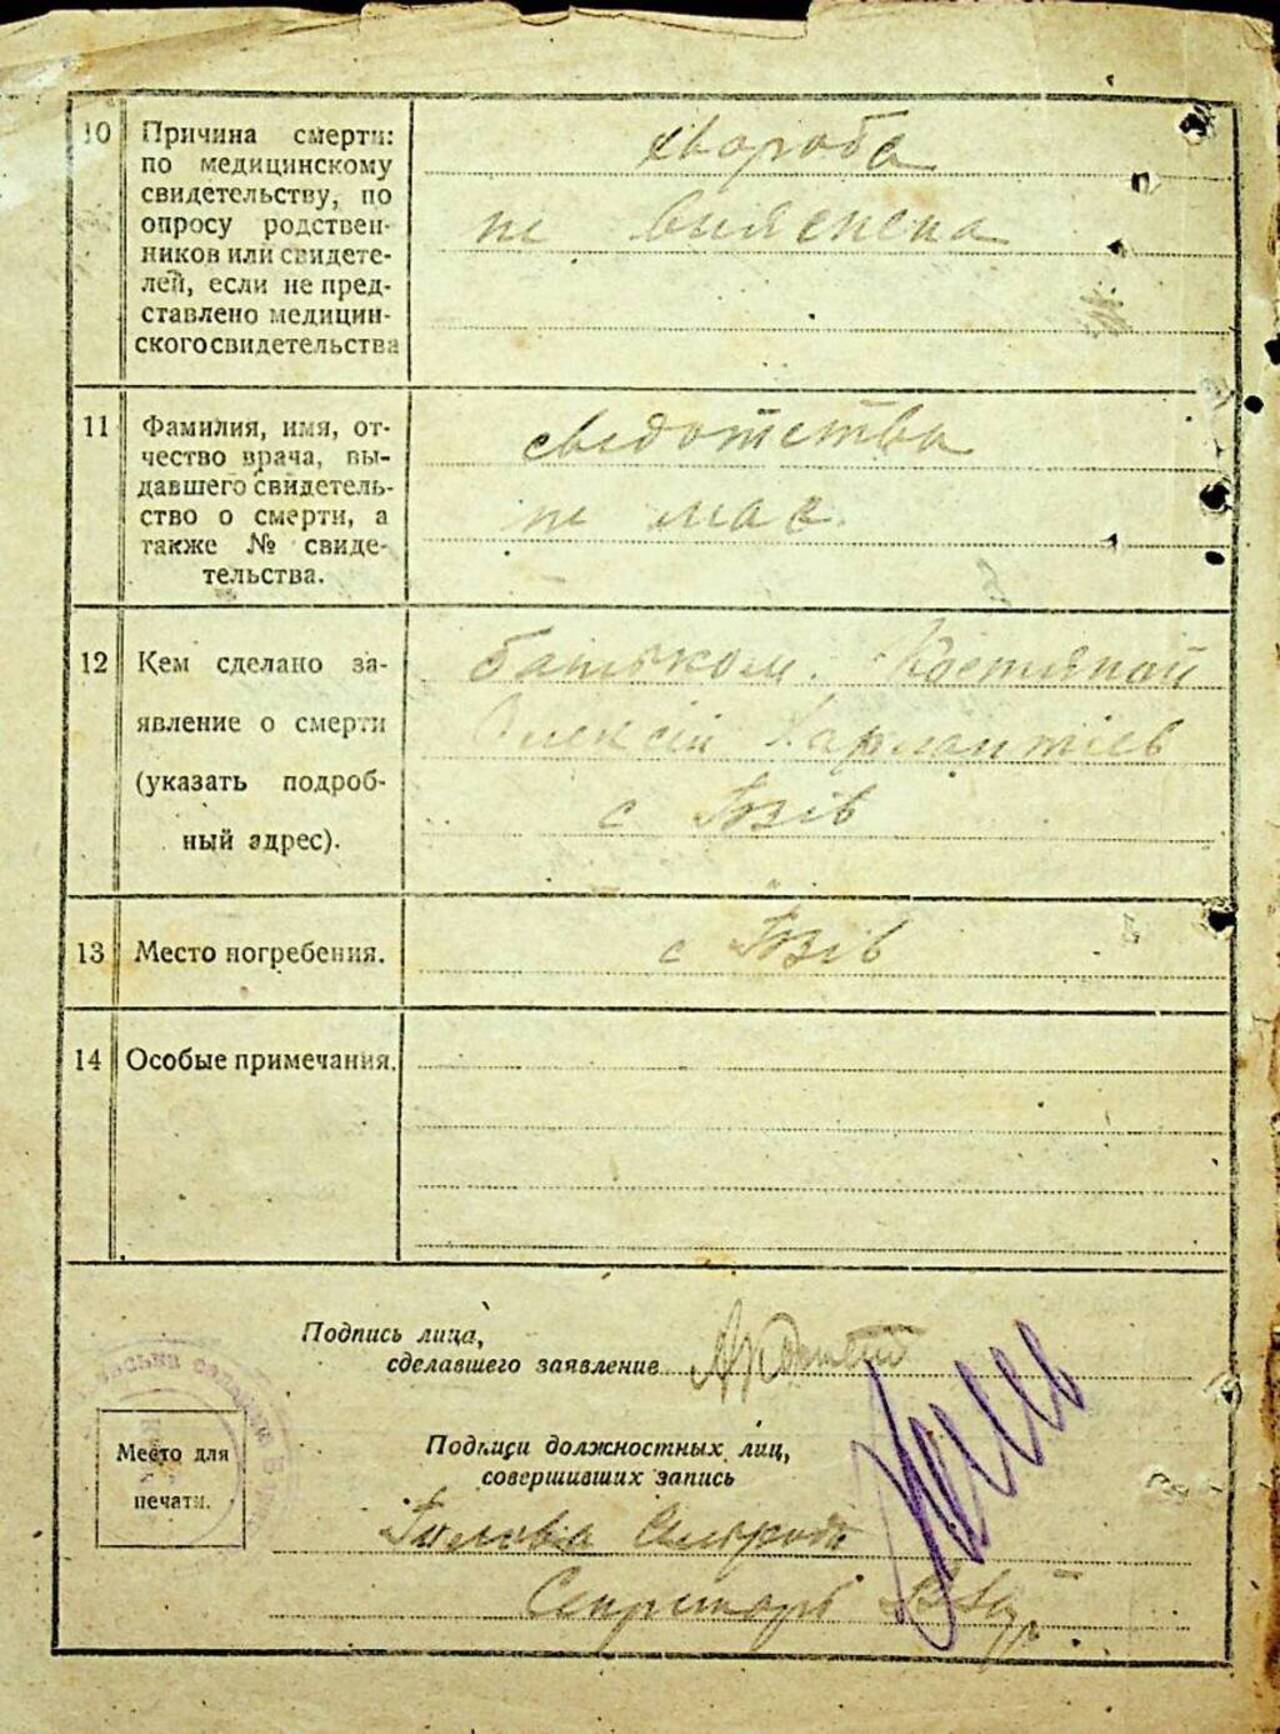 10
Причина смерти:
по медицинскому
свидетельству, по
опросу родствен-
ников или свидете-
лей, если не пред-
ставлено медицин-
ского свидетельства
хвороба
не вияснена
11
Фамилия, имя, от-
чество врача, вы-
давшего свидетель-
ство о смерти, а
также № свиде-
тельства.
свідотства
не має
12
Кем сделано за-
явление о смерти
(указать подроб-
ный адрес).
батьком.
Олексій
с
13
Место погребения.
с
14
Особые примечания.
Подпись лица,
сделавшего заявление
Место для
печати.
Подписи должностных лиц,
совершивших запись
Голова
Секритарь